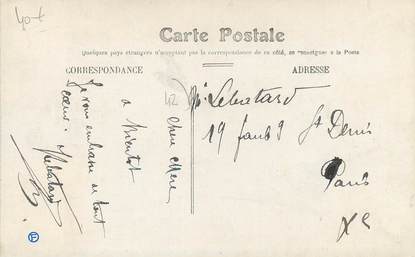 40 €
Carte Postale
Quelques pays étrangers n'acceptant pas la correspondance de ce côté, se renseigner à la Poste
CORRESPONDANCE
ADRESSE
42
Chère Mère
à bientôt
Je vous embrasse de tout
cœur.
Lebatard
Mr Lebatard
19 faub g
St Denis
Paris
Xe